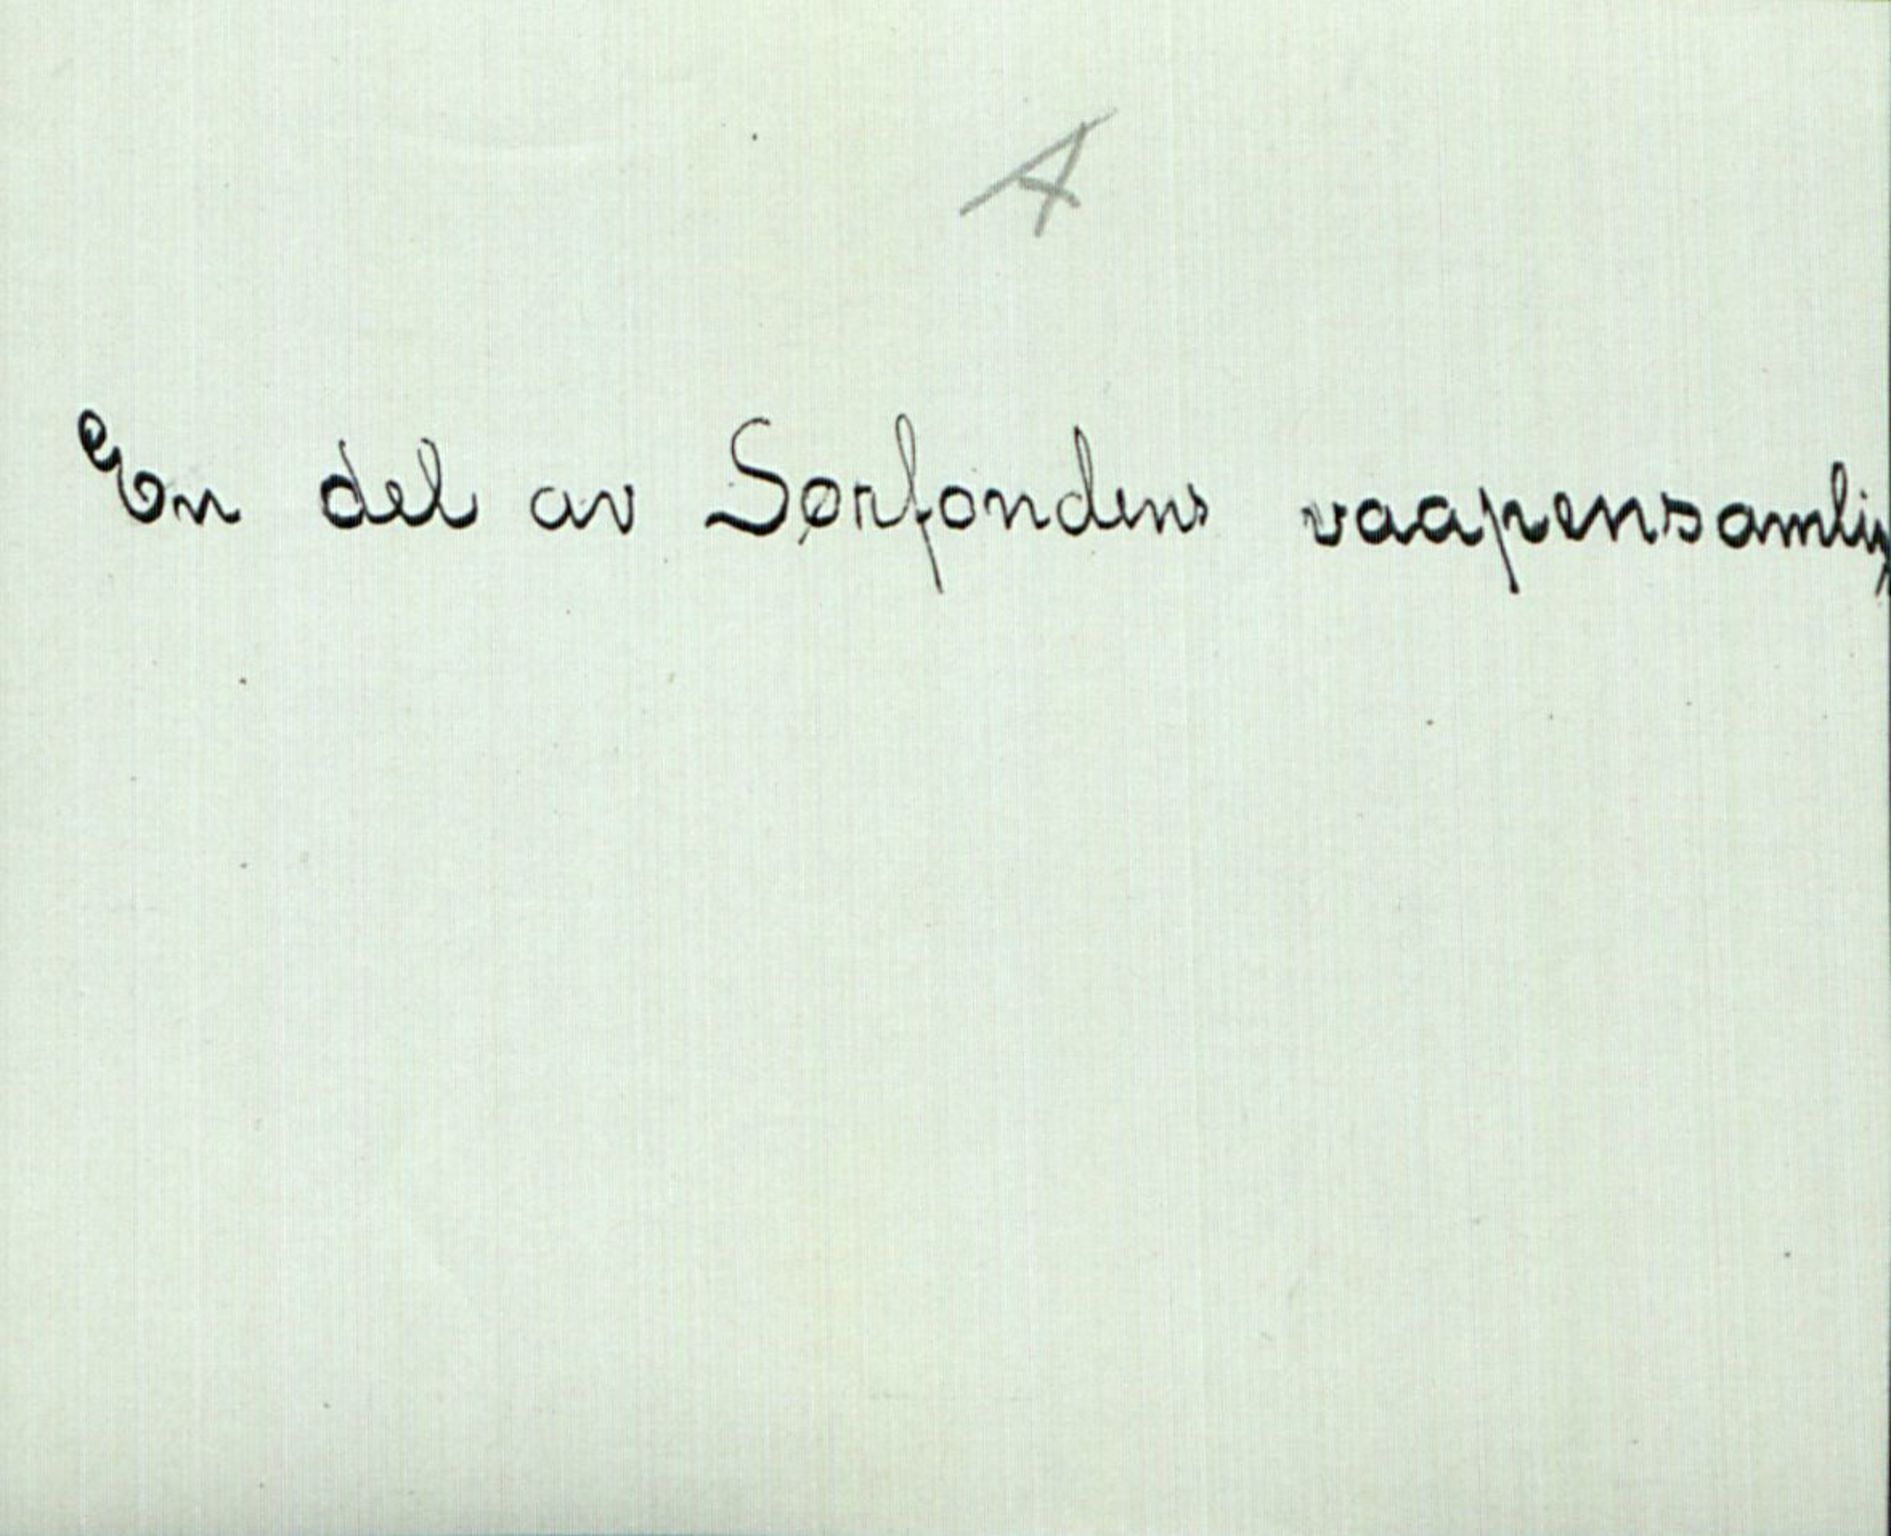 A
En del av Sørfondens vaapensamling